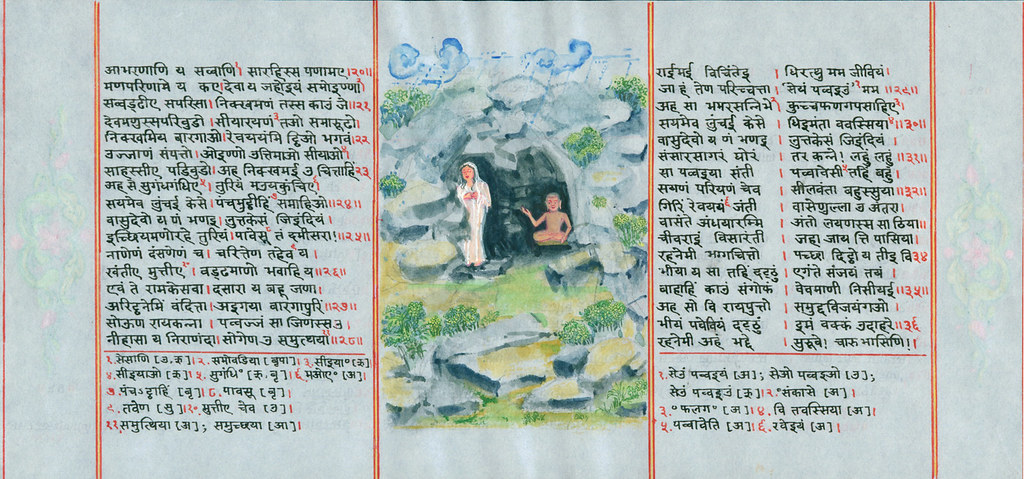 आभरणाणि य सव्वाणि१ सारहिस्स पणामए।२०॥
मणपरिणामे य कए। देवा य जहोइयं समोइण्णा।
सव्वड्ढीए सपरिसा। निक्खमणं तस्स काउं जे॥२१
देवमणुस्सपरिवुडो। सीयारयणं३ तओ समारूढो।
निक्खमिय बारगाओ। रेवययंमि ट्ठिओ भगवं॥२२
उज्जाणं संपत्तो। ओइण्णो उत्तिमाओ सीयाओ४।
साहस्सीए परिवुडो। अह निक्खमई उ चित्ताहिं२३
अह से सुगंधगंधिए५। तुरियं मउयकुंचिए६।
सयमेव लुंचई केसे। पंचमुट्ठीहिं७ समाहिओ॥२४॥
वासुदेवो य णं भणइ। लुत्तकेसं जिइंदियं।
इच्छियमणोरहे तुरियं। पावेसू८ तं दमीसरा!॥२५॥
नाणेणं दंसणेणं च। चरित्तेण तहेव९ य।
खंतीए मुत्तीए१०। वड्ढमाणो भवाहि य॥२६॥
एवं ते रामकेसवा। दसारा य बहू जणा।
अरिट्ठनेमिं वंदित्ता। अइगया बारगापुरिं॥२७॥
सोऊण रायकन्ना। पव्वज्जं सा जिणस्स उ।
नीहासा य निराणंदा। सोगेण उ समुत्थया११॥२८॥
४. सीइयाओ [क]। ५. सुगंधि° [क, बृ]।
११. समुत्थिया [अ]; समुच्छया [आ]।
राईमई विचिंतेइ। धिरत्थु मम जीवियं।
जा हं तेण परिच्चत्ता। सेयं पव्वइउं१ मम॥२९॥
अह सा भमरसन्निभे२। कुच्चफणगपसाहिए३।
सयमेव लुंचई केसे। धिइमंता ववस्सिया४॥३०॥
वासुदेवो य णं भणइ। लुत्तकेसं जिइंदियं।
संसारसागरं घोरं। तर कन्ने! लहुं लहुं॥३१॥
सा पव्वइया संती। पव्वावेसी५ तहिं बहुं।
सयणं परियणं चेव। सीलवंता बहुस्सुया॥३२॥
गिरिं रेवययं६ जंती। वासेणुल्ला उ अंतरा।
वासंते अंधयारम्मि। अंतो लयणस्स सा ठिया॥
चीवराइं विसारंती। जहा जाय त्ति पासिया।
रहनेमी भग्गचित्तो। पच्छा दिट्ठो य तीइ वि३४
भीया य सा तहिं दट्ठुं। एगंते संजयं तयं।
बाहाहिं काउं संगोफं। वेवमाणी निसीयई॥३५॥
अह सो वि रायपुत्तो। समुद्दविजयंगओ।
भीयं पवेवियं दट्ठुं। इमं वक्कं उदाहरे॥३६
रहनेमी अहं भद्दे। सुरूवे! चारुभासिणि!।
१. सेउं पव्वइयं [अ]; सेओ पव्वइओ [उ];
सेउं पव्वइउं [क]। २. °संकासे [अ]।
३. °फलग° [अ]। ४. वि तवस्सिया [अ]।
५. पव्वावेति [अ]। ६. रवेइयं [अ]।